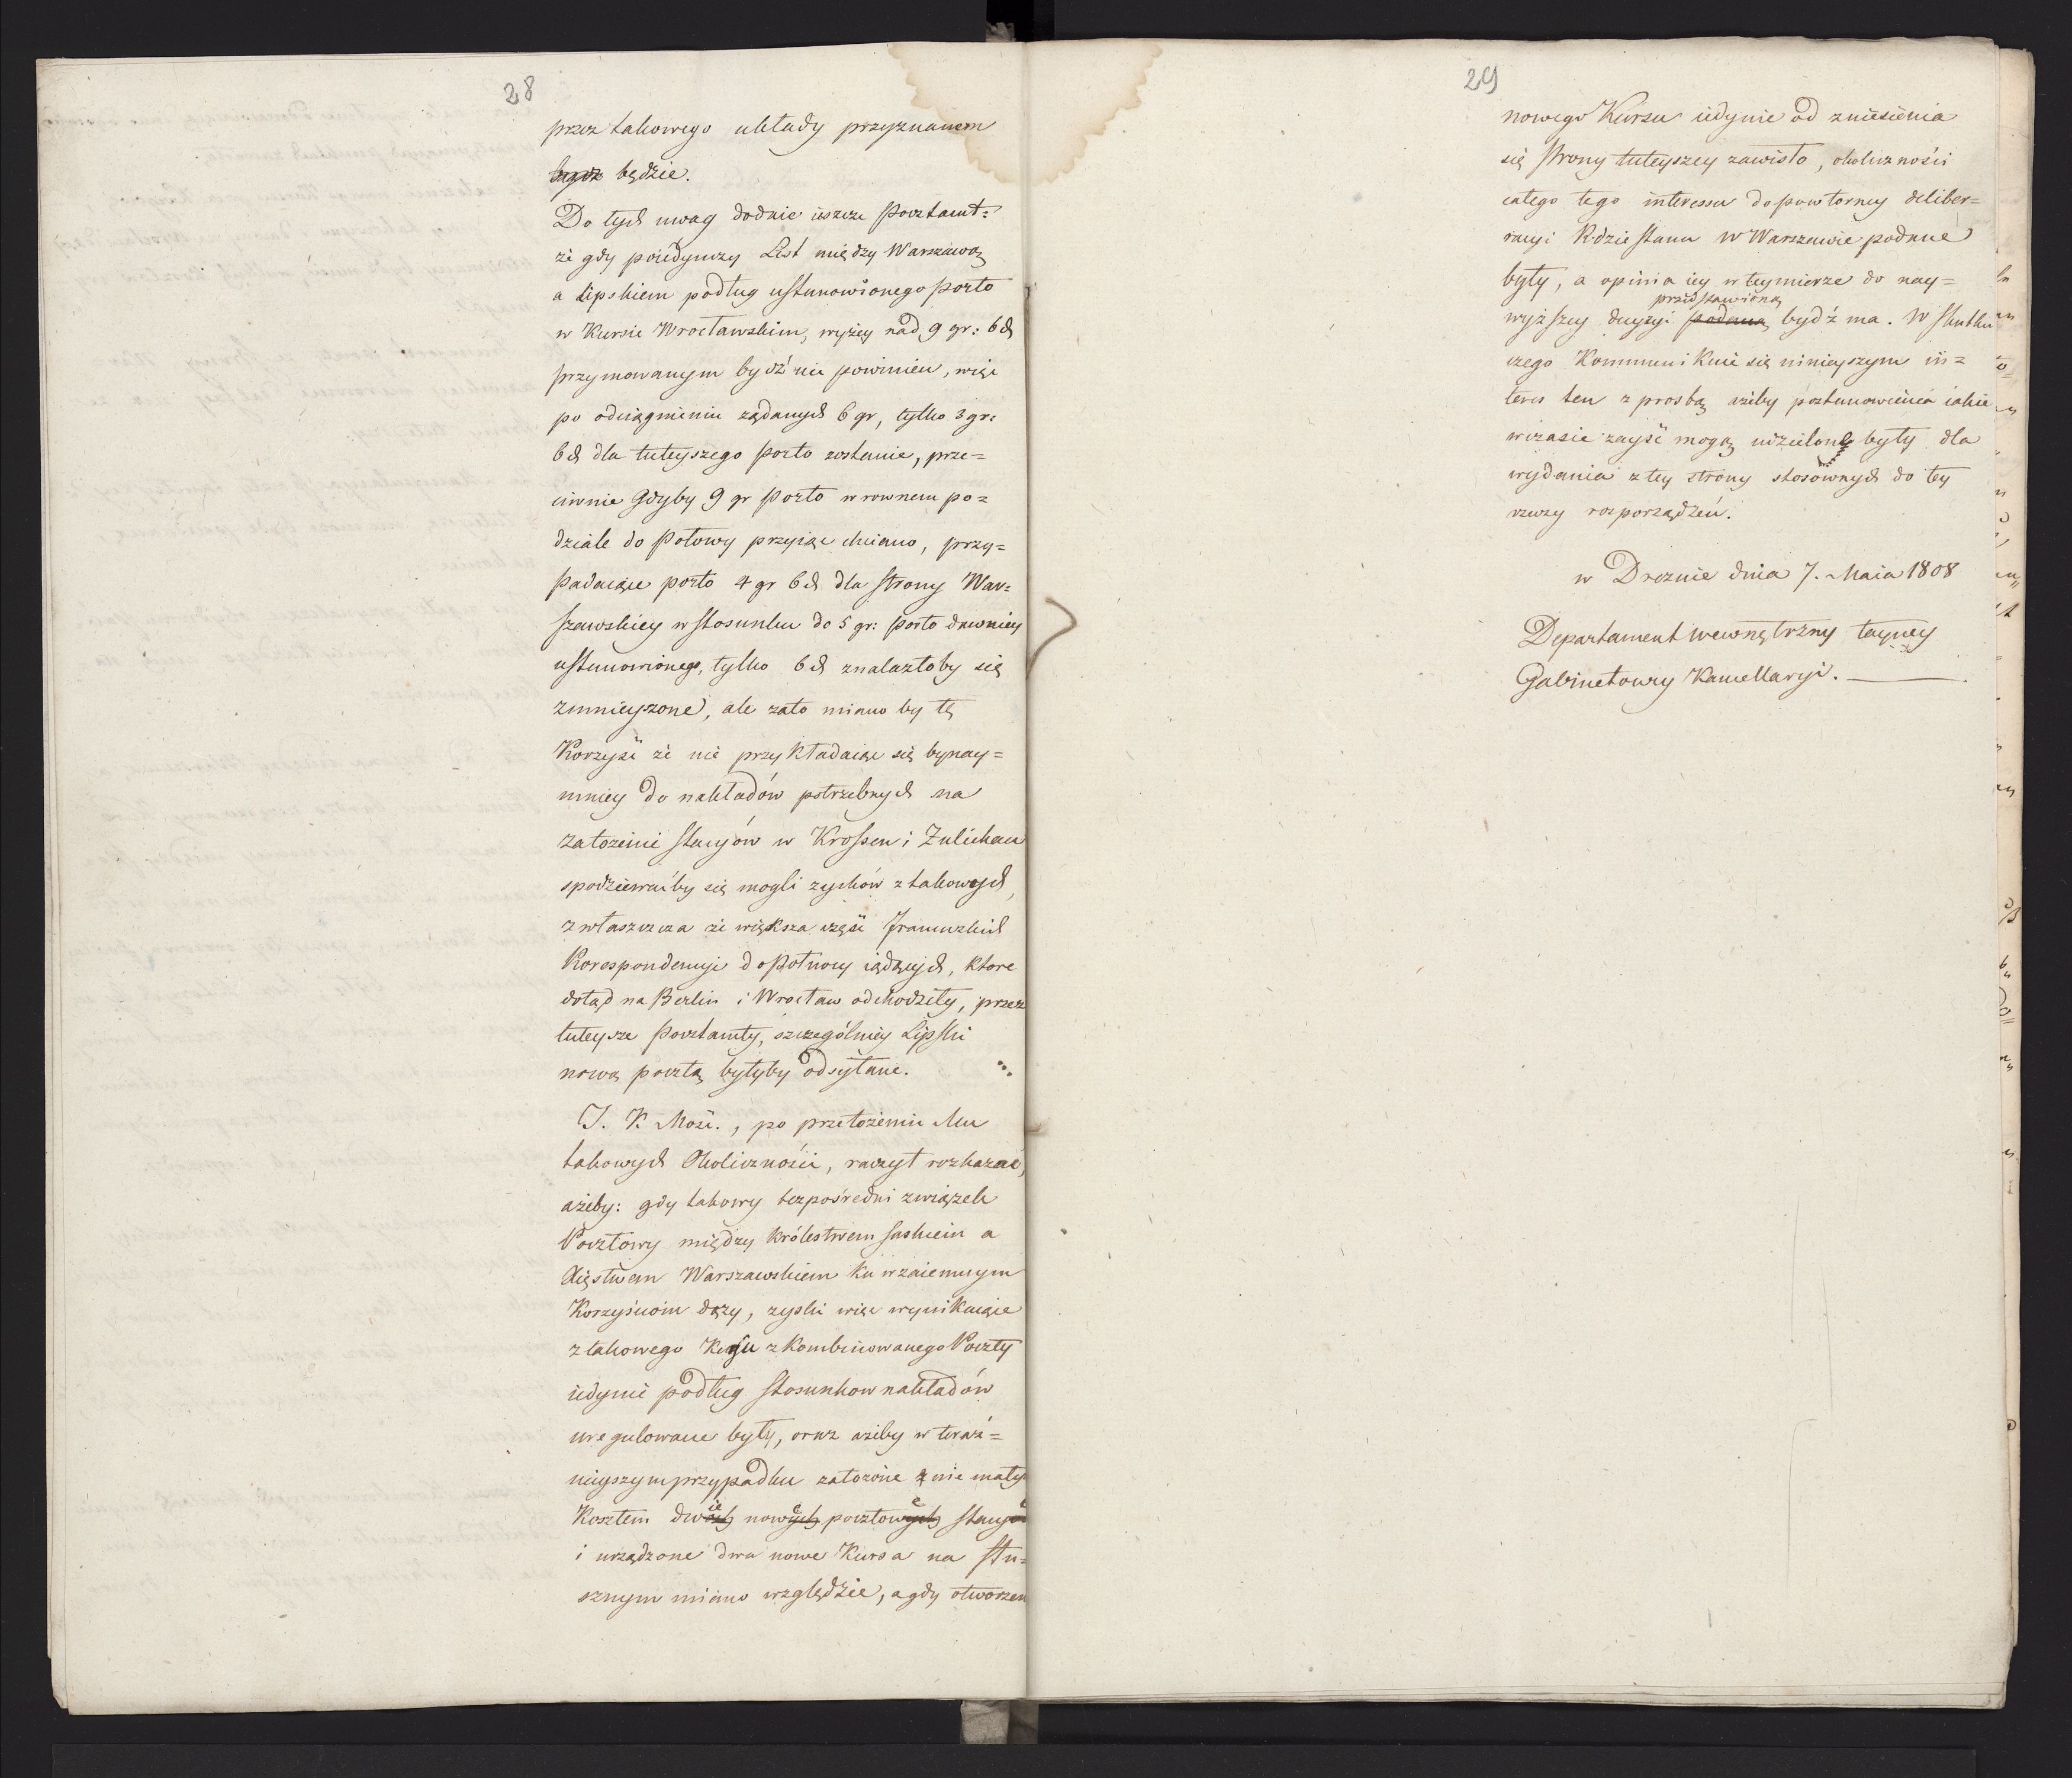 28
przez takowego układy przyznanem
będzie.
Do tych uwag dodaie ieszcze Pocztamt:
że gdy poiedynczy List między Warszawą
a Lipskiem podług ustanowionego porto
w Kursie Wrocławskim, wyżey nad 9 gr: 6 d
przymowanym bydź nie powinien, więc
po odciągnieniu żądanych 6 gr, tylko 3 gr:
6 d dla tuteyszego porto zostanie, prze=
ciwnie Gdyby 9 gr porto w rownem po=
dziale do Połowy przyiąc chciano, przy=
padaiące porto 4 gr 6 d dla strony War=
szawskiey w stosunku do 5 gr: porto dawniey
ustanowionego, tylko 6 d znalazłoby się
zmnieyszone, ale zato miano by tę
Korzyść że nie przykładaiąc się bynay=
mniey do nakładów potrzebnych na
założenie stacyów w Krossen i Zulichau
spodziewaćby się mogli zysków z takowych,
zwłaszcza że większa część Francuzkich
Korespondencyi do Północy idących, ktore
dotąd na Berlin i Wrocław odchodziły, przez
tuteysze Pocztamty, szczególniey Lipski
nową pocztą byłyby odsyłane.
J. K. Mość., po przełożeniu Mu
takowych Okoliczności, raczył rozkazać,
ażeby: gdy takowy bezpośredni związek
Pocztowy między królestwem Saskiem a
Xięstwem Warszawskiem ku wzaiemnym
Korzyściom dąży, zyski więc wynikaiące
z takowego Kursu zkombinowanego Poczty
iedynie podług stosunkow nakładów
uregulowane były, oraz ażeby w teraź=
nieyszym przypadku założone z nie małym
Kosztem dwie nowe pocztowe stacye
i urządzone dwa nowe Kursa na słu=
sznym miano względzie, a gdy otworzen
29
nowego Kursu iedynie od zniesienia
się strony tuteyszey zawisło, okoliczności
całego tego interessu do powtorney deliber=
racyi Rdzie stanu w Warszawie podane
były, a opinia iey w teymierze do nay=
przedstawioną
wyższey decyzyi podaną bydź ma. W skutku
czego Kommunikuie się ninieyszym in=
teres ten z prosbą ażeby postanowienia iakie
wczasie zayść mogą udzielone były dla
wydania z tey strony stosownych do tey
rzeczy rosporządzeń.
w Dreznie dnia 7. Maia 1808
Departament wewnętrzny tayney
Gabinetowey Kancellaryi.